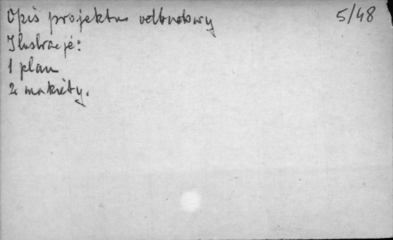 Opis projektu odbudowy 5/48
Ilustracje:
1 plan
2 makiety.